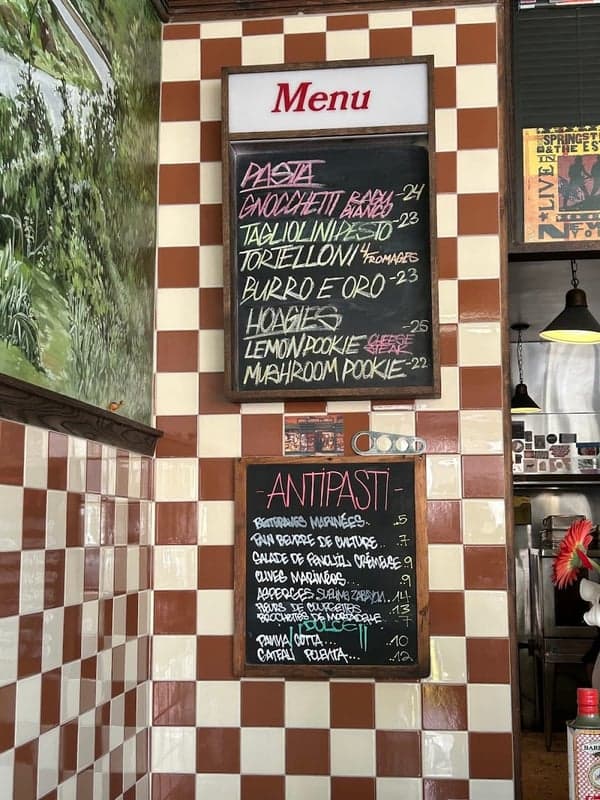 Menu
PASTA
GNOCCHETTI RAGU BIANCO -24
TAGLIOLINI PESTO -23
TORTELLONI 4 FROMAGES
BURRO E ORO -23
HOAGIES
LEMON POOKIE CHEESE STEAK -25
MUSHROOM POOKIE -22
-ANTIPASTI-
BETTERAVES MARINÉES.. .5
PAIN BEURRE DE CULTURE.. .7
SALADE DE FENOUIL CRÉMEUSE 9
OLIVES MARINÉES... .9
ASPERGES SUBLIMA ZABAYON ..14
FLEURS DE COURGETTES ..13
BOCCHETTES DE MORTADELLE .. 7
DOLCE
PANNA COTTA... ..10
GATEAU POLENTA... ..12
SPRINGSTEEN
& THE E ST
LIVE IN